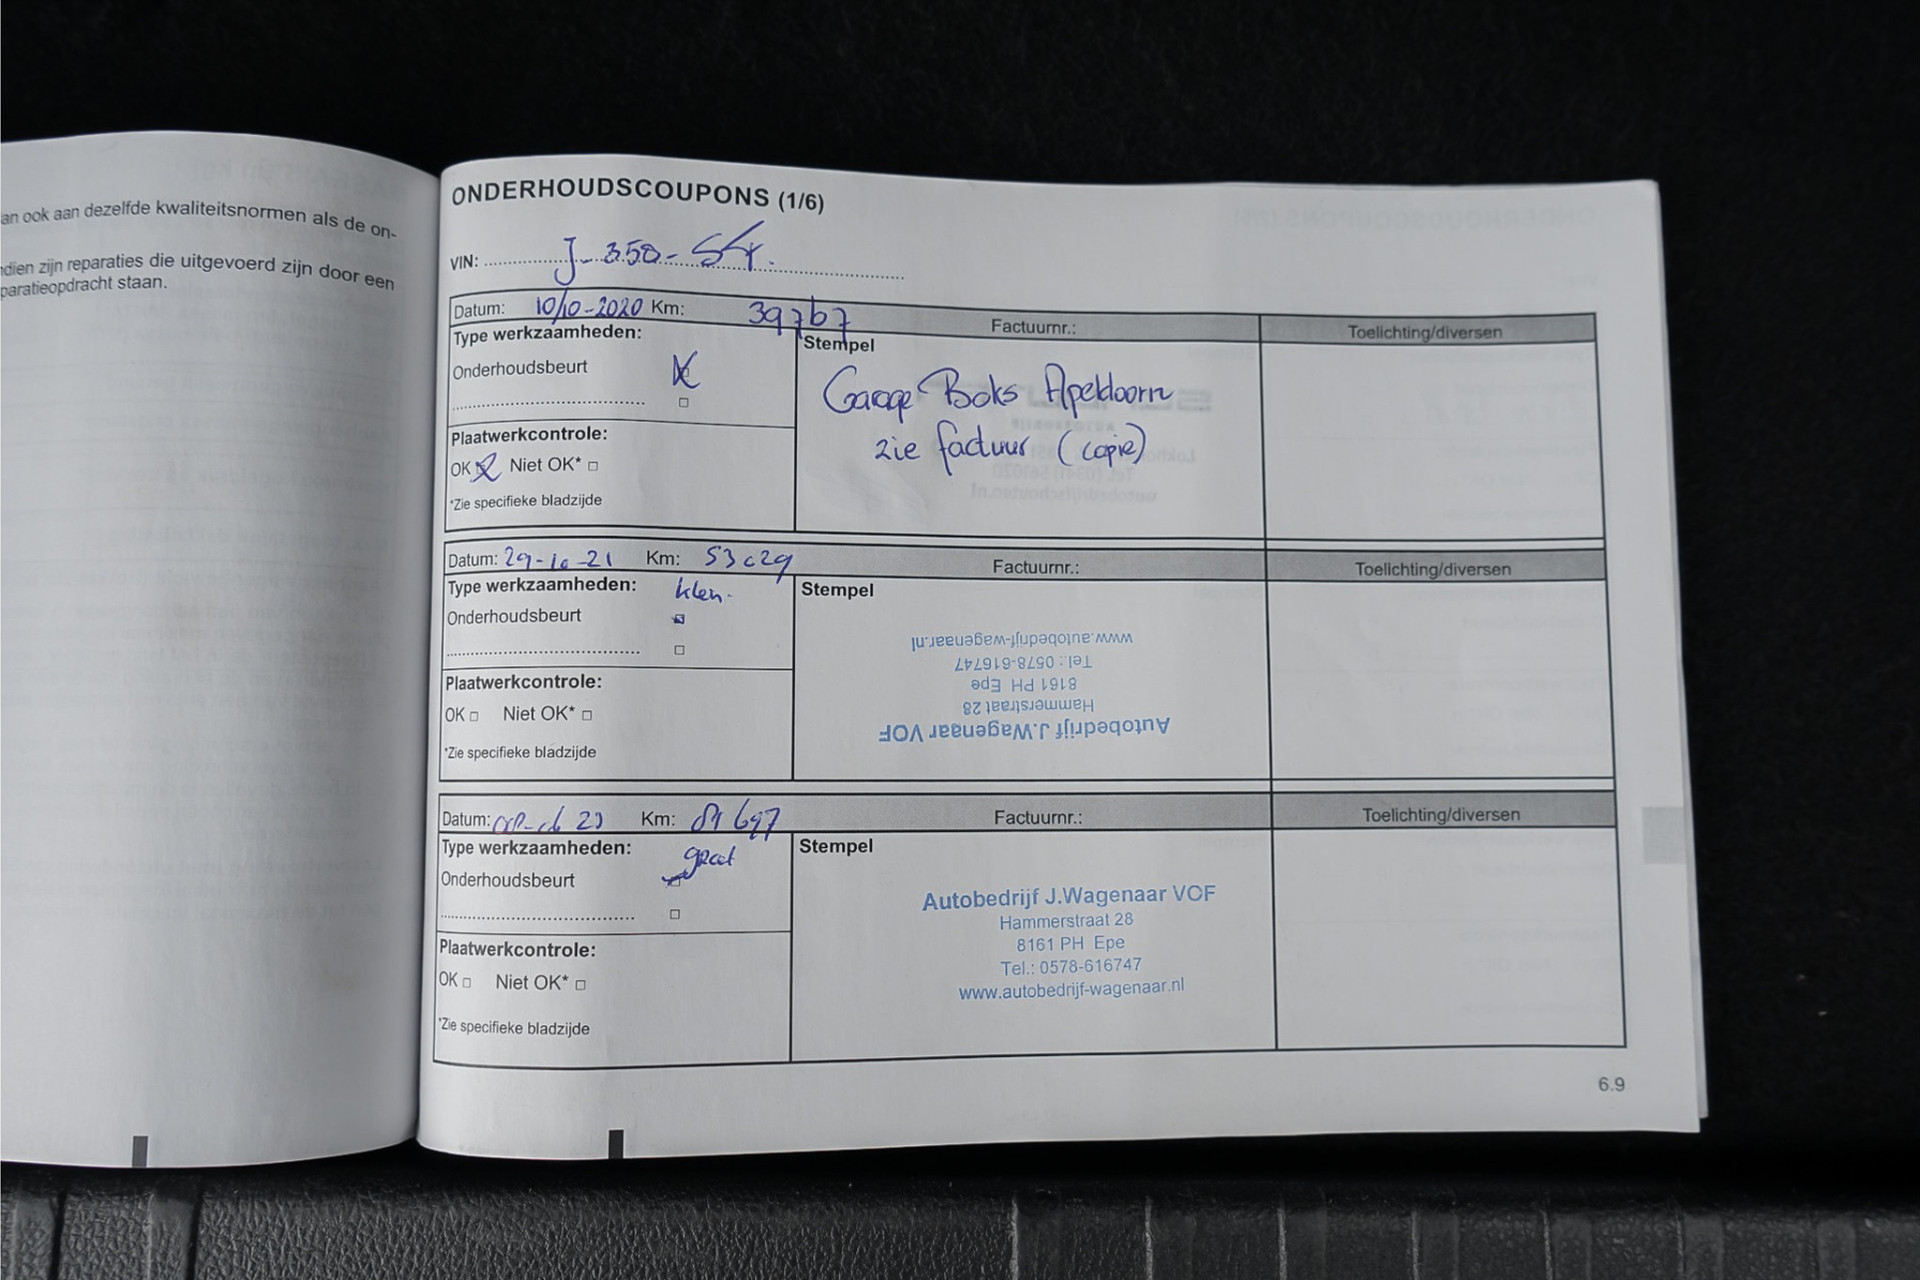 an ook aan dezelfde kwaliteitsnormen als de on-
dien zijn reparaties die uitgevoerd zijn door een
paratieopdracht staan.
ONDERHOUDSCOUPONS (1/6)
VIN: J-350-
Datum: 10/10-2020 Km: 39767 Factuurnr.: Toelichting/diversen
Type werkzaamheden: Stempel
Onderhoudsbeurt
Garage Boks Apeldoorn
zie factuur (copie)
Plaatwerkcontrole:
OK Niet OK*
*Zie specifieke bladzijde
Datum: 29-10-21 Km: 53029 Factuurnr.: Toelichting/diversen
Type werkzaamheden: klein Stempel
Onderhoudsbeurt
Autobedrijf J.Wagenaar VOF
Hammerstraat 28
8161 PH Epe
Tel.: 0578-616747
www.autobedrijf-wagenaar.nl
Plaatwerkcontrole:
OK Niet OK*
*Zie specifieke bladzijde
Datum: Km: Factuurnr.: Toelichting/diversen
Type werkzaamheden: groot Stempel
Onderhoudsbeurt
Autobedrijf J.Wagenaar VOF
Hammerstraat 28
8161 PH Epe
Tel.: 0578-616747
www.autobedrijf-wagenaar.nl
Plaatwerkcontrole:
OK Niet OK*
*Zie specifieke bladzijde
6.9